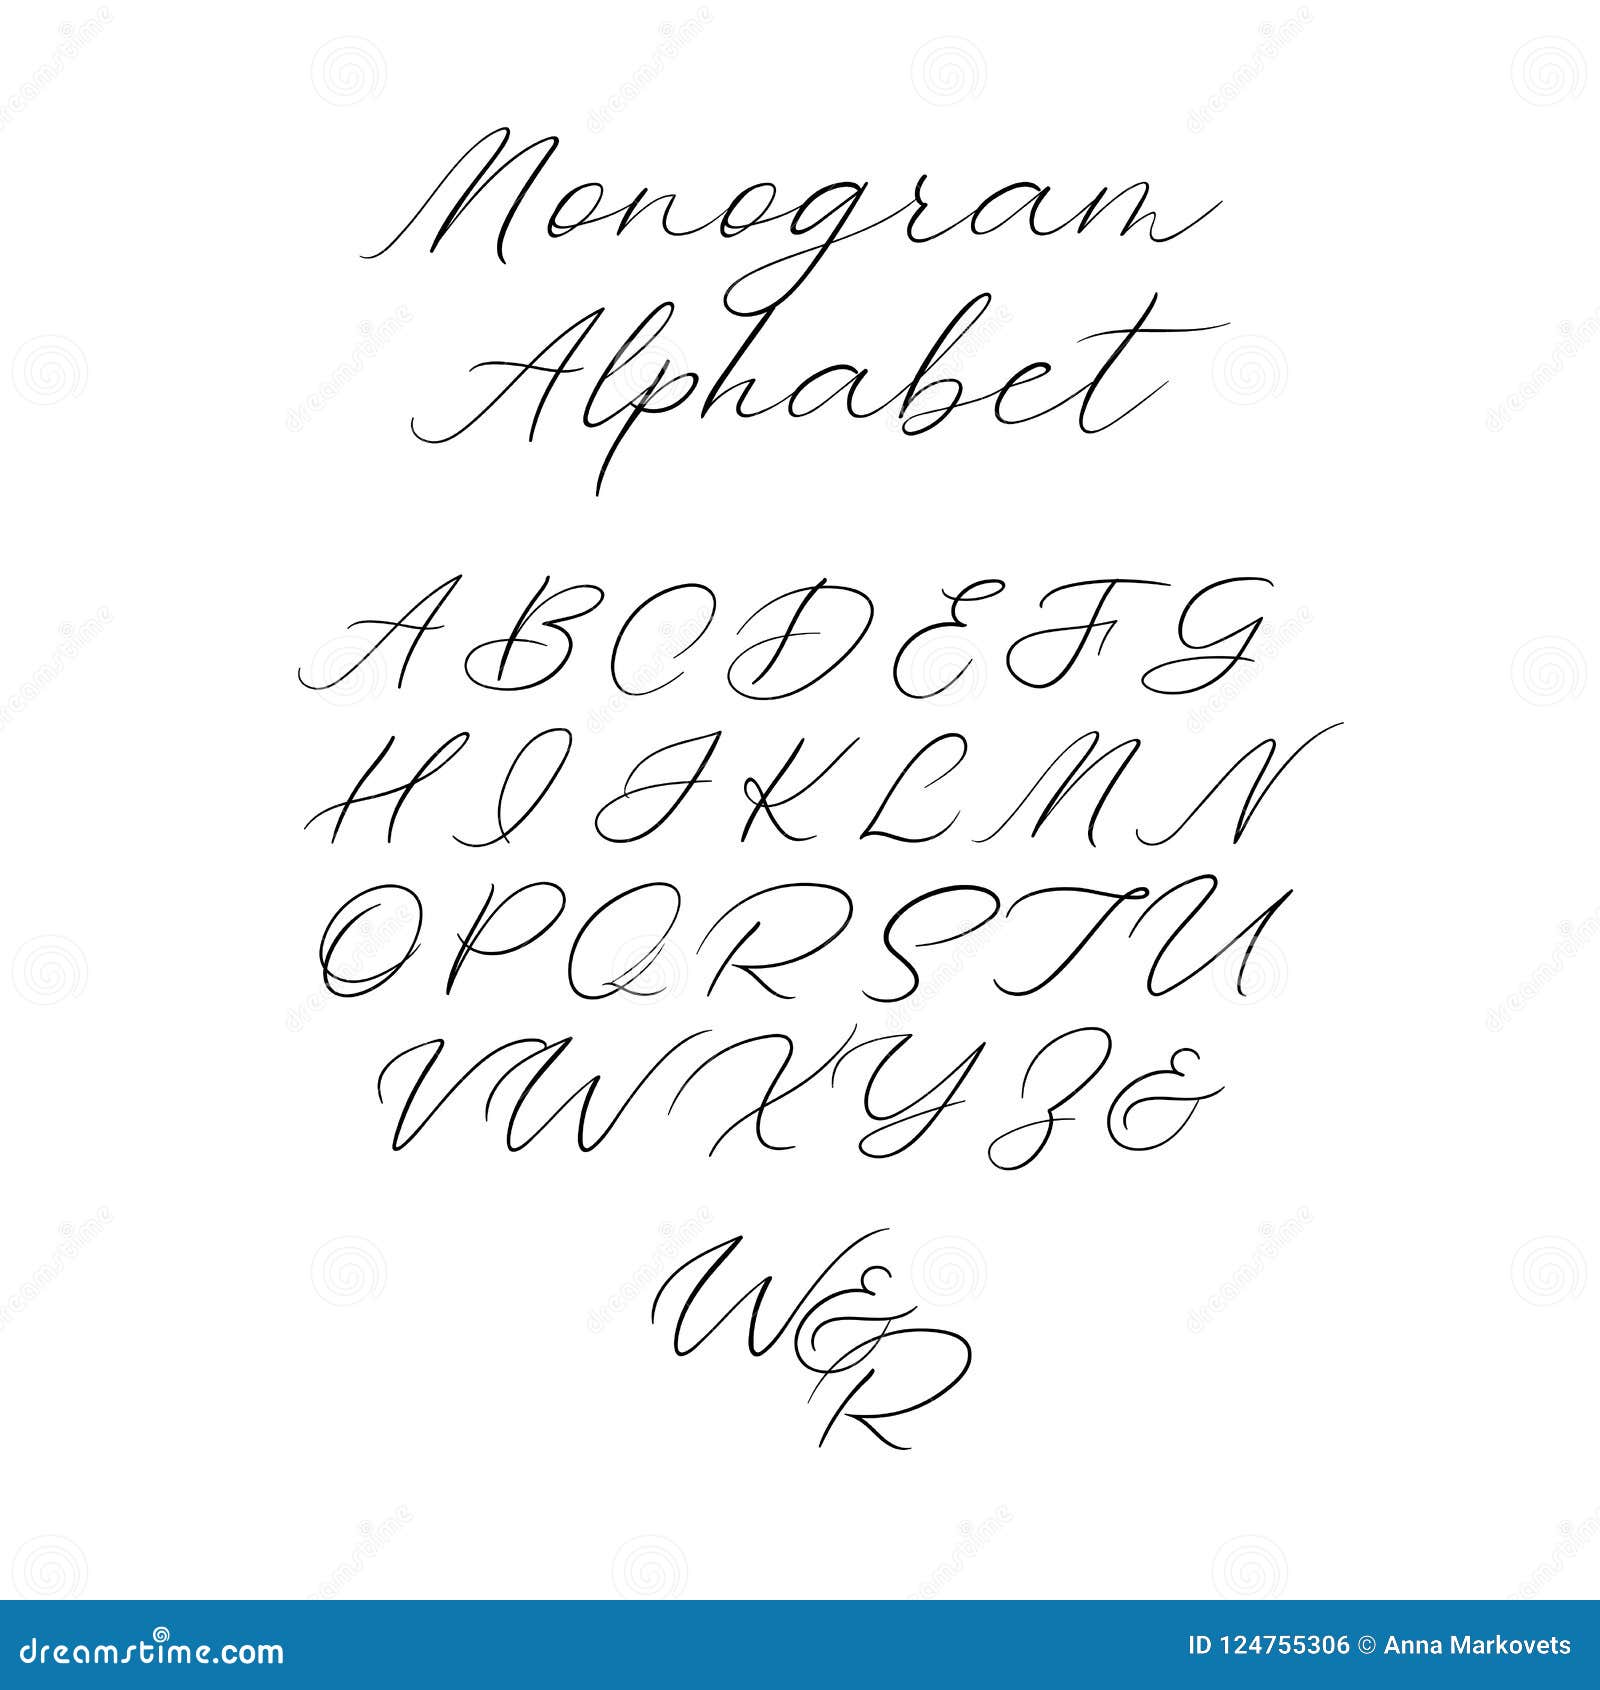 Monogram
Alphabet
A B C D E F G
H I J K L M N
O P Q R S T U
V W X Y Z &
W&
R
dreamstime.com
ID 124755306 © Anna Markovets